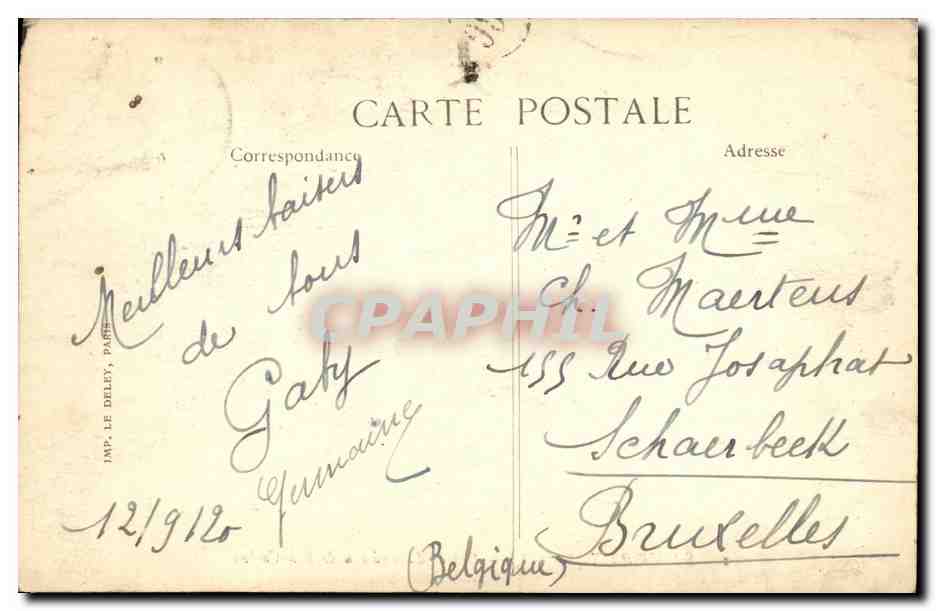 CARTE POSTALE
Correspondance
Adresse
Meilleurs baisers
de tous
Gaby
Germaine
12/9/20
IMP. LE DELEY, PARIS
Mr et Mme
Ch. Maertens
155 Rue Josaphat
Schaerbeek
Bruxelles
(Belgique)
CPAPHIL